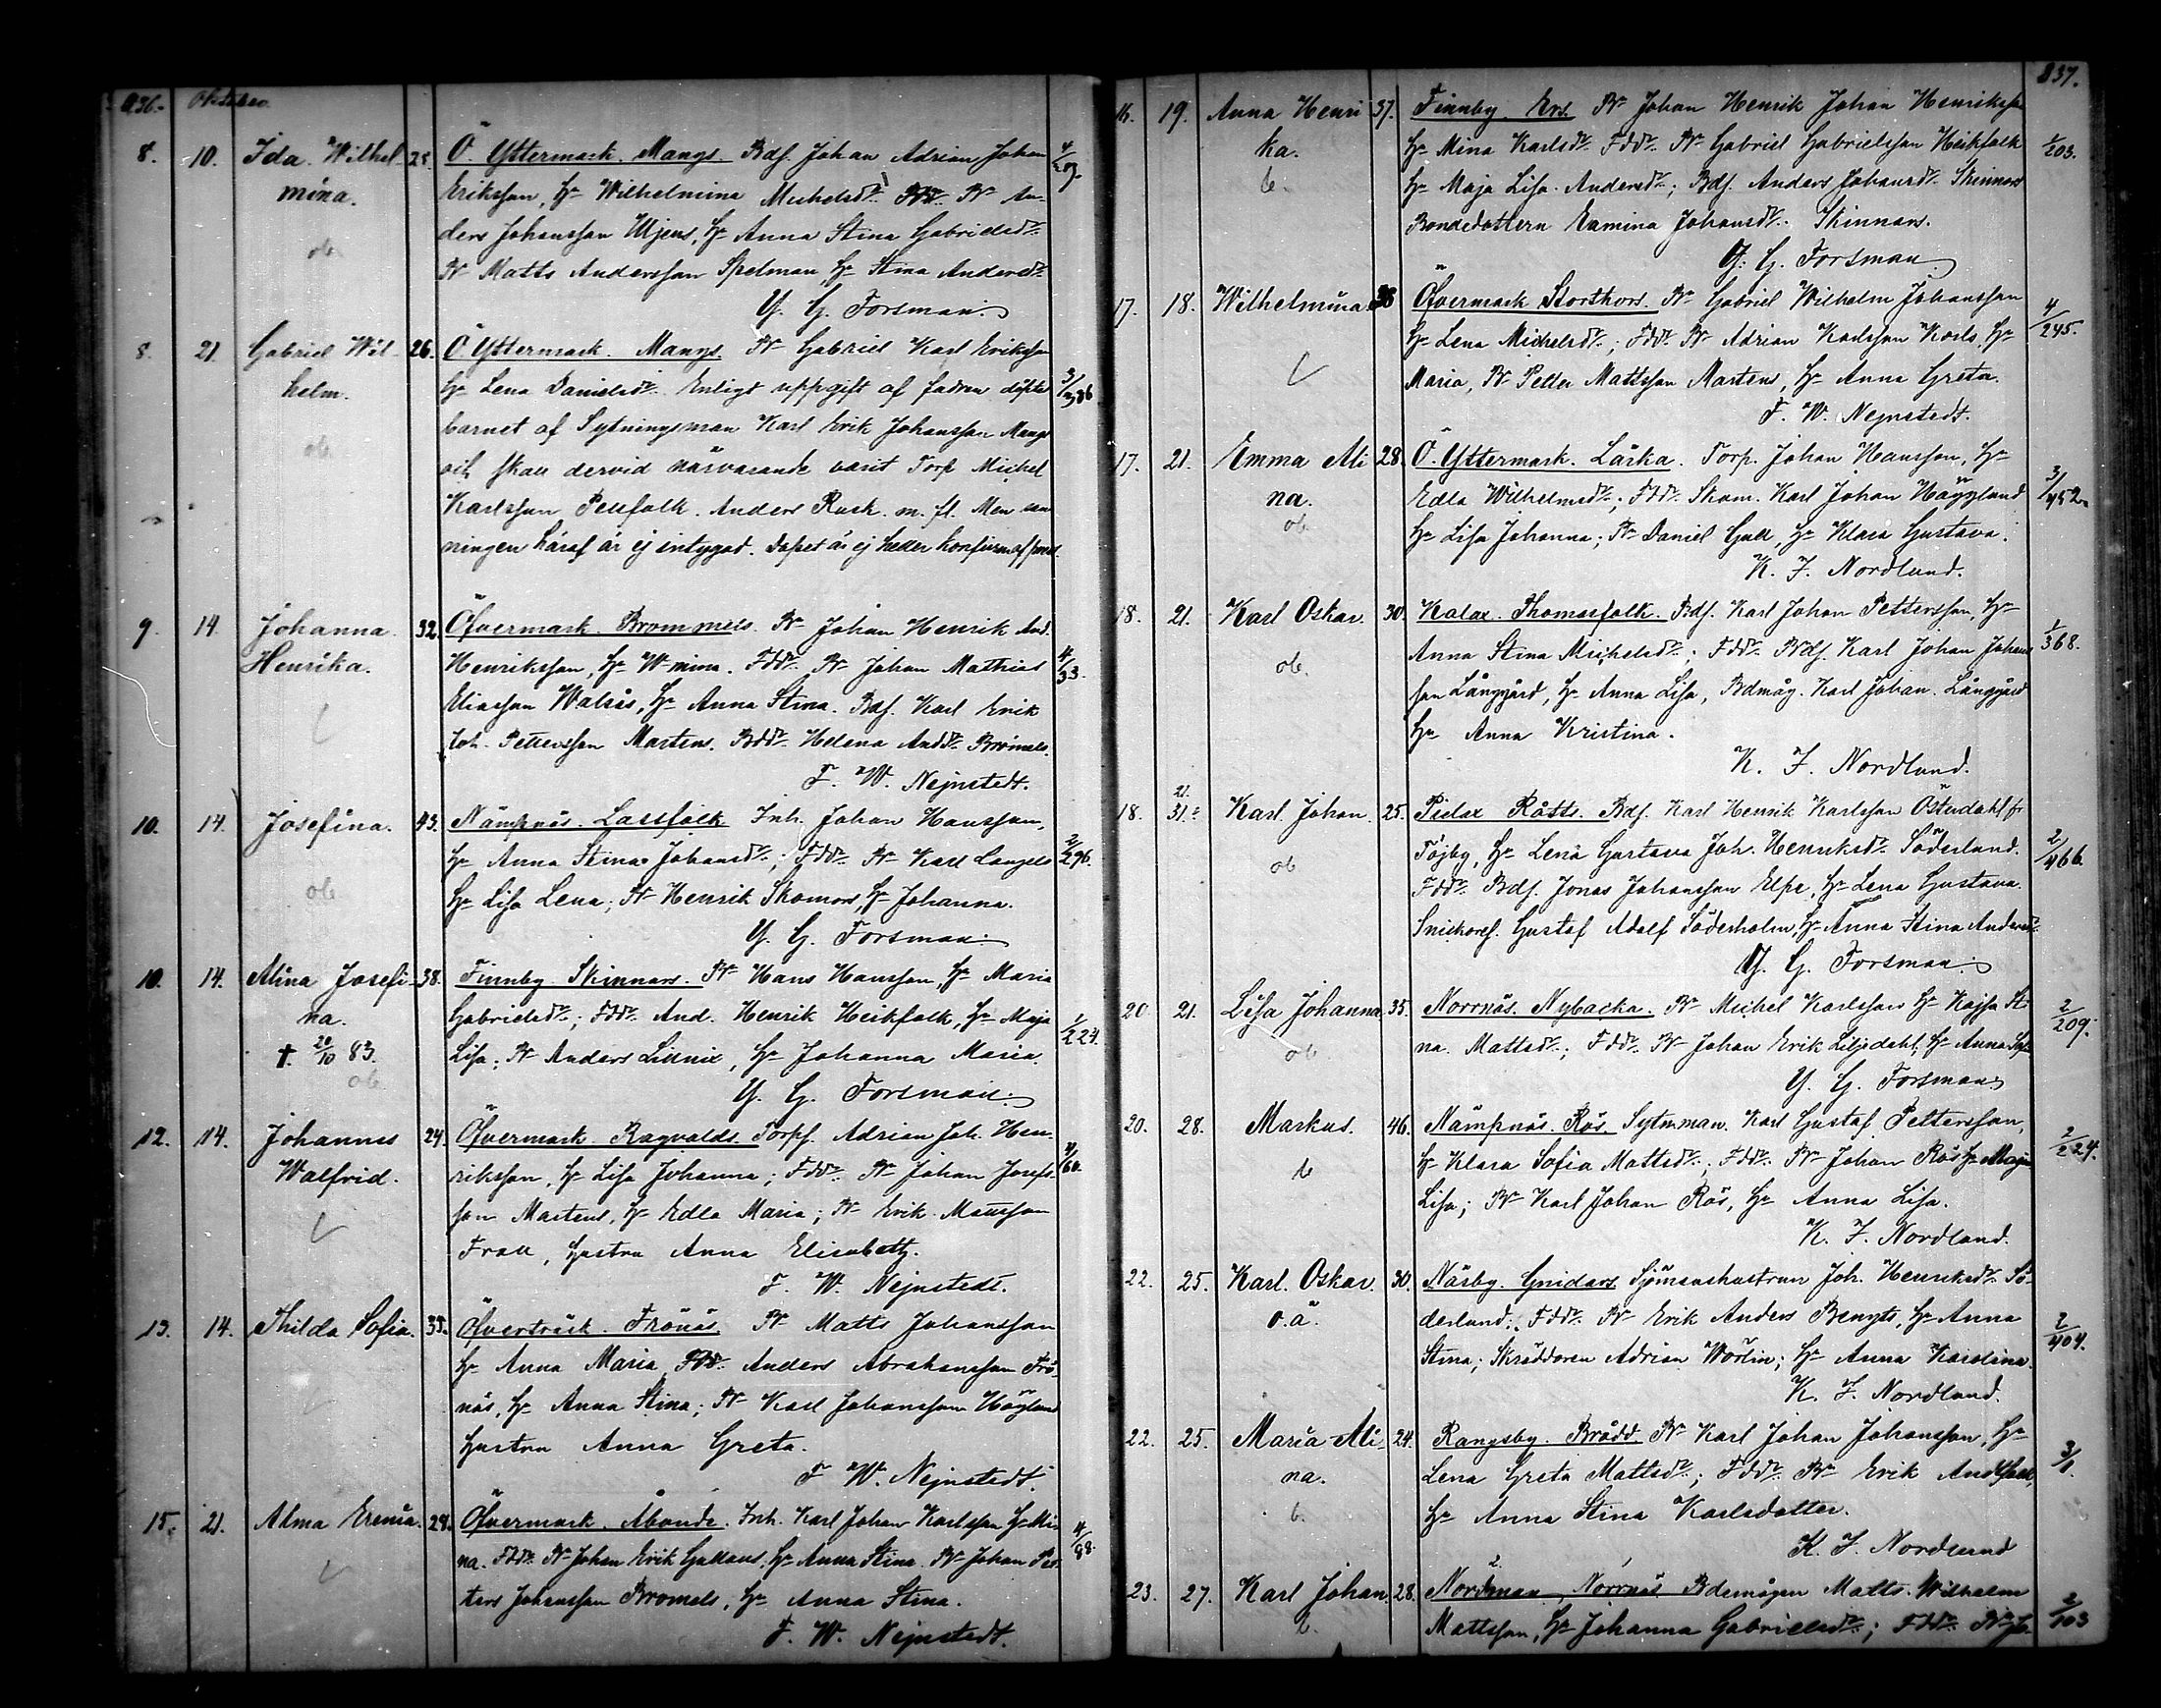 836. Oktober
8. 10. Ida Wilhel 25. Ö. Yttermark. Mangs. Bdf. Johan Adrian Johan
mina. Eriksson, Hu Wilhelmina Michelsdr. Fddr. Br An-
ders Johansson Mjens, Hu Anna Stina Gabrielsdr.
ob Br Matts Andersson Spelman, Hu Stina Andersdr.
Y. G. Forsman.
8. 21. Gabriel Wil- 26. Ö. Yttermark. Mangs. Br Gabriel Karl Eriksson
helm. Hu Lena Danielsdr. Enligt uppgift af fadren döpte 3/386
barnet af Sytningsman Karl Erik Johansson Mangs
ob och skall dervid närvarande varit Torp. Michel
Karlsson Pellfolk. Anders Rusk. m. fl. Men san
ningen häraf är ej intygad. Dopet är ej heller
9. 14. Johanna 32. Öfvermark. Brommels. Br Johan Henrik And.
Henrika. Henriksson, Hu W-mina. Fddr. Br Johan Mathias 4/33.
Eliasson Walsås, Hu Anna Stina. Bdf. Karl Erik
Joh. Pettersson Martens. Bddr. Helena Anddr. Bromels.
F. W. Nejnstedt.
10. 14. Josefina. 43. Nämpnäs. Lassfolk Inh. Johan Hansson,
Hu Anna Stina Johansdr.; Fddr. Br Karl Langels 2/296.
ob Hu Lisa Lena; Br Henrik Skomars, Hu Johanna.
Y. G. Forsman.
10. 14. Alina Josefi- 38. Finnby. Skinnars. Br Hans Hansson, Hu Maria
na. Gabrielsdr.; Fddr. And. Henrik Heikfolk, Hu Maja 1/224.
†. 20/10 83. Lisa; Br Anders Lillnix, Hu Johanna Maria.
ob Y. G. Forsman.
12. 14. Johannes 24. Öfvermark. Ragvalds. Torpf. Adrian Joh. Hen-
Walfrid. riksson, Hu Lisa Johanna; Fddr. Br Johan Josefs-
son Martens, Hu Edla Maria; Br Erik Mattsson
Frall, hustru Anna Elisabeth.
F. W. Nejnstedt.
13. 14. Thilda Sofia. 35. Öfverträsk. Frönäs. Br Matts Johansson
Hu Anna Maria, Fddr. Anders Abrahamsson Frö-
näs, Hu Anna Stina; Br Karl Johansson Höglund
hustru Anna Greta.
F. W. Nejnstedt.
15. 21. Alma Irenia. 28. Öfvermark. Åbonde. Inh. Karl Johan Karlsson Hu Mi-
na. Fddr. Br Johan Erik Gullans, Hu Anna Stina. Br Johan Pet- 4/88.
ters Johansson Bromels, Hu Anna Stina.
F. W. Nejnstedt.
837.
16. 19. Anna Henri 37. Finnby. Ers. Br Johan Henrik Johan Henriksson
ka. Hu Mina Karlsdr. Fddr. Br Gabriel Gabrielsson Heikfolk 1/203.
b. Hu Maja Lisa Andersdr.; Bdf. Anders Johansdr. Skinnars
Bondedottern Eamina Johansdr. Skinnars.
Y. G. Forsman.
17. 18. Wilhelmina. 38 Öfvermark Storthors. Br Gabriel Wilhelm Johansson
Hu Lena Michelsdr.; Fddr. Br Adrian Karlsson Korls, Hu 4/245.
Maria, Br Petter Mattsson Martens, Hu Anna Greta.
F. W. Nejnstedt.
17. 21. Emma Ali 28. Ö. Yttermark. Lärka. Torp. Johan Hansson, Hu
na. Edla Wilhelmsdr.; Fddr. Skom. Karl Johan Häggland 3/452.
ob Hu Lisa Johanna; Br Daniel Gull, Hu Klara Gustava.
K. J. Nordlund.
18. 21. Karl Oskar. 30. Kalax. Thomasfolk. Bdf. Karl Johan Pettersson, Hu
Anna Stina Michelsdr.; Fddr. Bdf. Karl Johan Johans 1/368.
ob. son Långgård, Hu Anna Lisa, Bdmåg. Karl Johan Långgård
Hu Anna Kristina.
K. J. Nordlund.
21.
18. 31. Karl Johan. 25. Pielax Rätts. Bdf. Karl Henrik Karlsson Östendahl fr.
ob Töjby, Hu Lena Gustava Joh. Henriksdr. Söderlund. 2/466.
Fddr. Bdf. Jonas Johansson Elpe, Hu Lena Gustava.
Snickaref. Gustaf Adolf Söderholm, Hu Anna Stina Andersdr.
Y. G. Forsman.
20. 21. Lisa Johanna. 35. Norrnäs. Nybacka. Br Michel Karlsson Hu Kajsa Sti
ob na Mattsdr.; Fddr. Br Johan Erik Liljedahl, Hu Anna 2/209.
Y. G. Forsman.
20. 28. Markus. 46. Nämpnäs. Rös. Sytnman. Karl Gustaf Pettersson,
b Hu Klara Sofia Mattsdr.; Fddr. Br Johan Rös Hu Maja 2/224.
Lisa; Br Karl Johan Rös, Hu Anna Lisa.
K. J. Nordlund.
22. 25. Karl Oskar. 30. Näsby. Gnidars. Sjömanshustrun Joh. Henriksdr. Sö-
o.ä. derlund; Fddr. Br Erik Anders Bengts, Hu Anna 2/404.
Stina; Skräddaren Adrian Wörlin; Hu Anna Karolina.
K. J. Nordlund.
22. 25. Maria Ali- 24. Rangsby. Brädd. Br Karl Johan Johansson, Hu
na. Lena Greta Mattsdr.; Fddr. Br Erik 3/1.
b. Hu Anna Stina Karlsdotter.
K. J. Nordlund
23. 27. Karl Johan 28. Nordman, Norrnäs Bdemågen Matts Wilhelm
b. Mattsson, Hu Johanna Gabrielsdr.; Fddr. Br 2/103